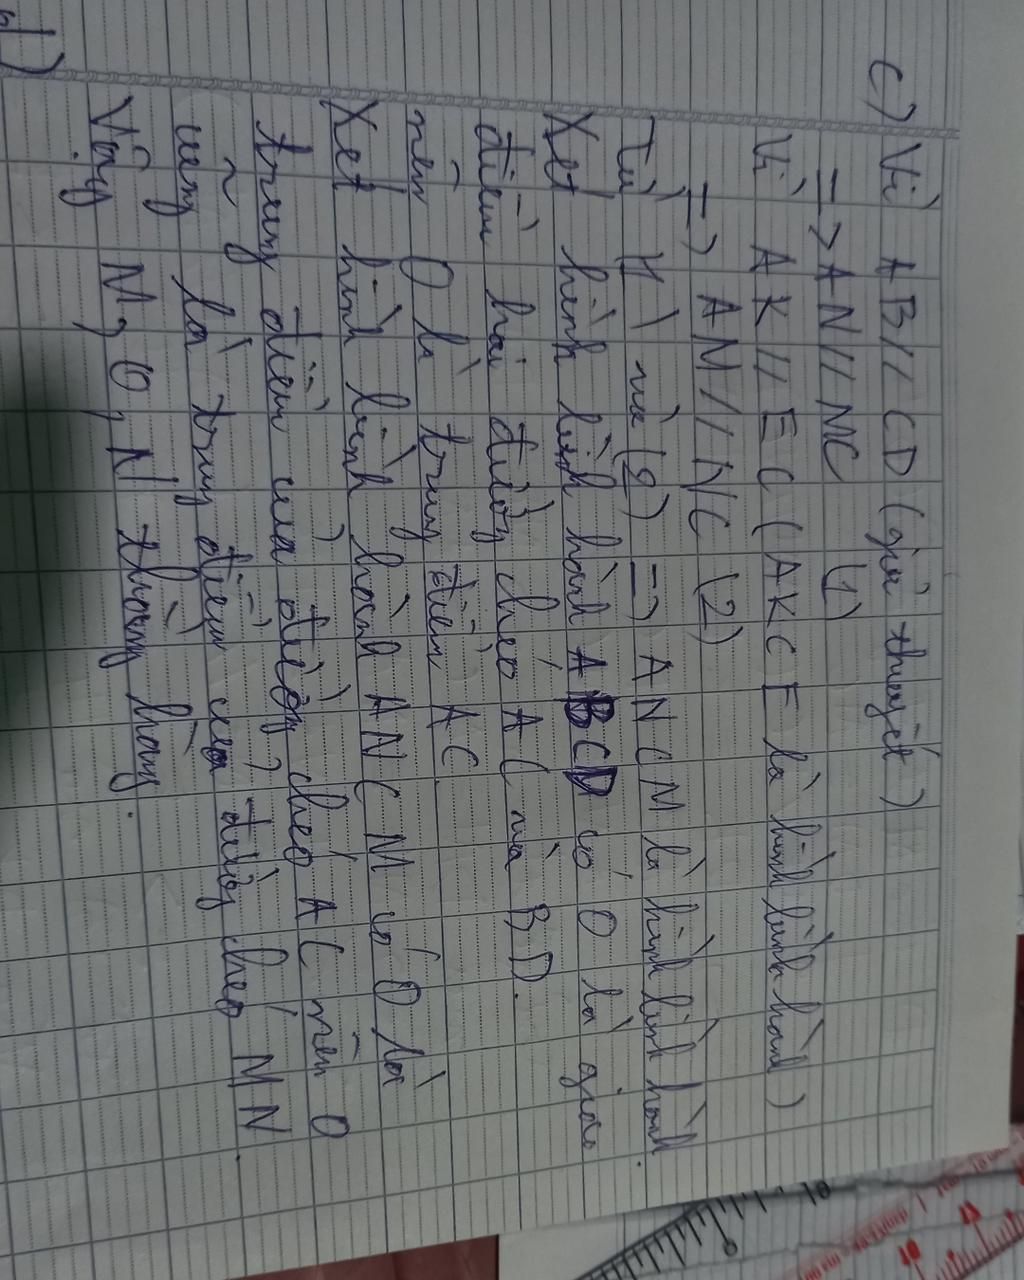 c) Vì AB // CD (giả thuyết)
=> AN // MC (1)
Vì AK // EC (AKCE là hình bình hành)
=> AM // NC (2)
Từ (1) và (2) => ANCM là hình bình hành.
Xét hình bình hành ABCD có O là giao
điểm hai đường chéo AC và BD.
nên O là trung điểm AC.
Xét hình bình hành ANCM có O là
trung điểm của đường chéo AC nên O
cũng là trung điểm của đường chéo MN.
Vậy M, O, N thẳng hàng.
d)